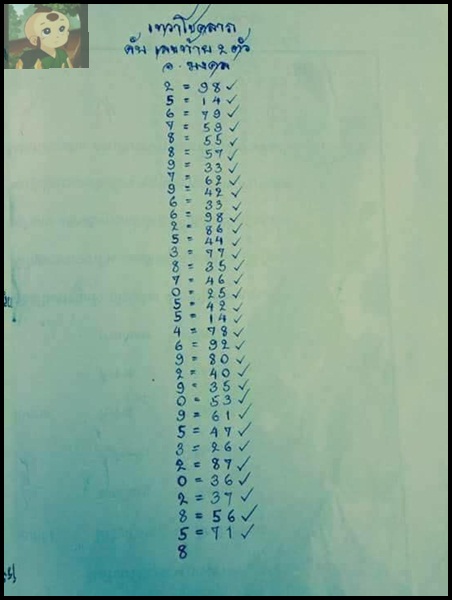 เทวาโชคลาภ
ดับ เลขท้าย 2 ตัว
อ. มงคล
2 = 98 ✓
5 = 14 ✓
6 = 79 ✓
7 = 59 ✓
8 = 55 ✓
8 = 57 ✓
9 = 33 ✓
7 = 62 ✓
9 = 42 ✓
6 = 33 ✓
6 = 98 ✓
2 = 86 ✓
5 = 44 ✓
3 = 77 ✓
8 = 35 ✓
7 = 46 ✓
0 = 25 ✓
5 = 42 ✓
5 = 14 ✓
4 = 78 ✓
6 = 92 ✓
9 = 80 ✓
2 = 40 ✓
9 = 35 ✓
0 = 53 ✓
9 = 61 ✓
5 = 47 ✓
3 = 26 ✓
2 = 87 ✓
0 = 36 ✓
2 = 37 ✓
8 = 56 ✓
5 = 71 ✓
8